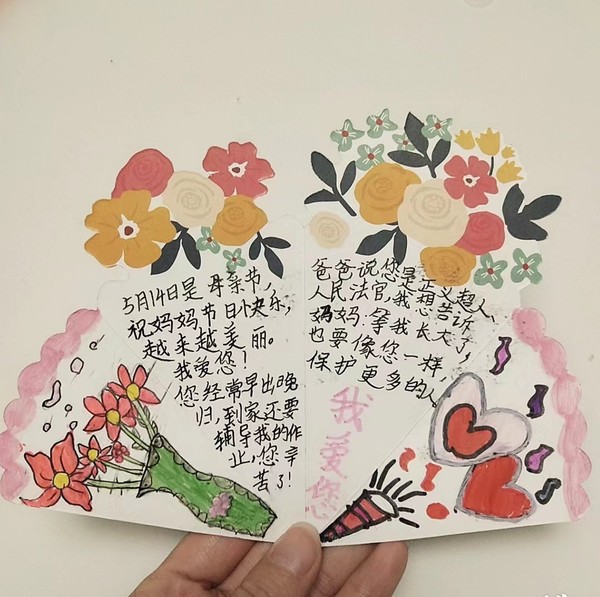 5月14日是母亲节,
祝妈妈节日快乐,
越来越美丽。
我爱您!
您经常早出晚
归,到家还要
辅导我的作
业,您辛
苦了!
爸爸说您是正义超人,
人民法官,我想告诉
妈妈:等我长大了,
也要像您一样,
保护更多的人
我爱您